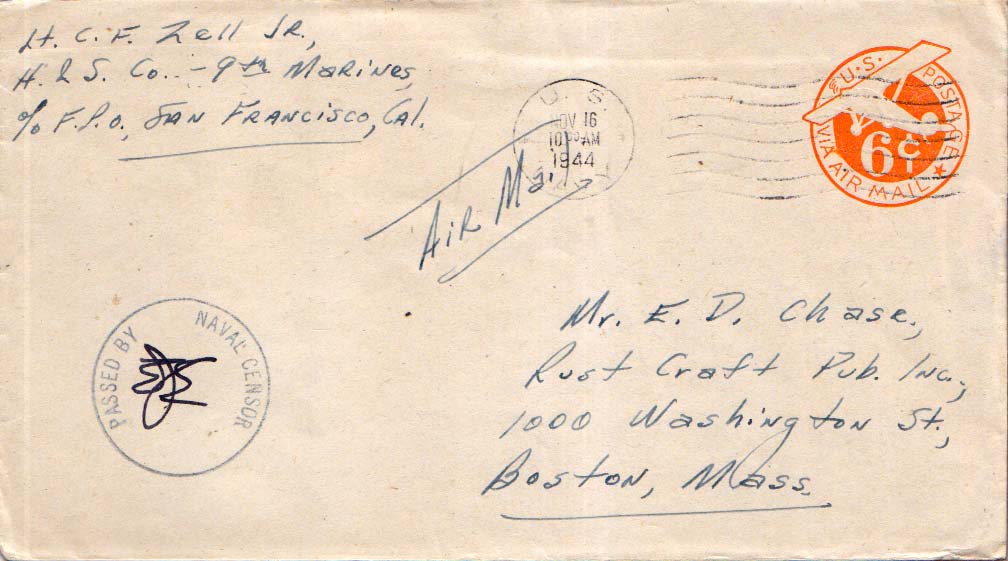 Lt. C. F. Zell Jr.,
H. & S. Co. - 9th Marines
c/o F.P.O., San Francisco, Cal.
U. S.
NOV 16
10 AM
1944
U.S. POSTAGE
6¢
VIA AIR MAIL
Air Mail
PASSED BY NAVAL CENSOR
Mr. E. D. Chase,
Rust Craft Pub. Inc.,
1000 Washington St.,
Boston, Mass.